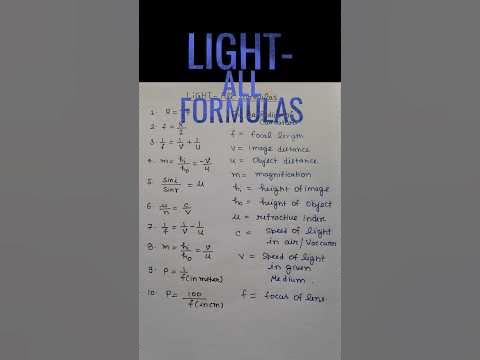 LIGHT-
ALL
FORMULAS
LIGHT-
2. f =
3. 1/f = 1/v + 1/u
4. m = hi/ho = -v/u
5. sin i/sin r = u
6. u/n = c/v
7. 1/f = 1/v - 1/u
8. m = hi/ho = v/u
9. P = 1/f (in meter)
10. P = 100/f (in cm)
f = focal length
v = image distance
u = Object distance
m = magnification
hi = height of image
ho = height of Object
u = refractive index
c = Speed of light
in air/Vaccum
v = Speed of light
in given
Medium.
f = focus of lens